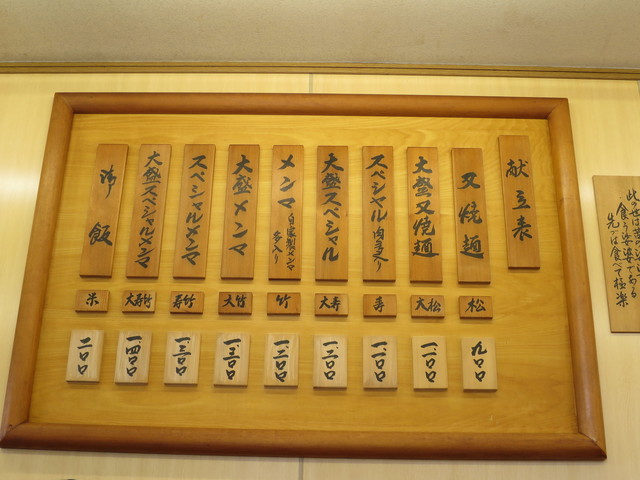 献立表
叉焼麺
大盛叉焼麺
スペシャル 肉多入り
大盛スペシャル
メンマ 自家製メンマ多入り
大盛メンマ
スペシャルメンマ
大盛スペシャルメンマ
御飯
松
大松
寿
大寿
竹
大竹
寿竹
大寿竹
米
九〇〇
一、〇〇〇
一、一〇〇
一、二〇〇
一、二〇〇
一、三〇〇
一、三〇〇
一、四〇〇
二〇〇
食う姿
先づは食べて極楽